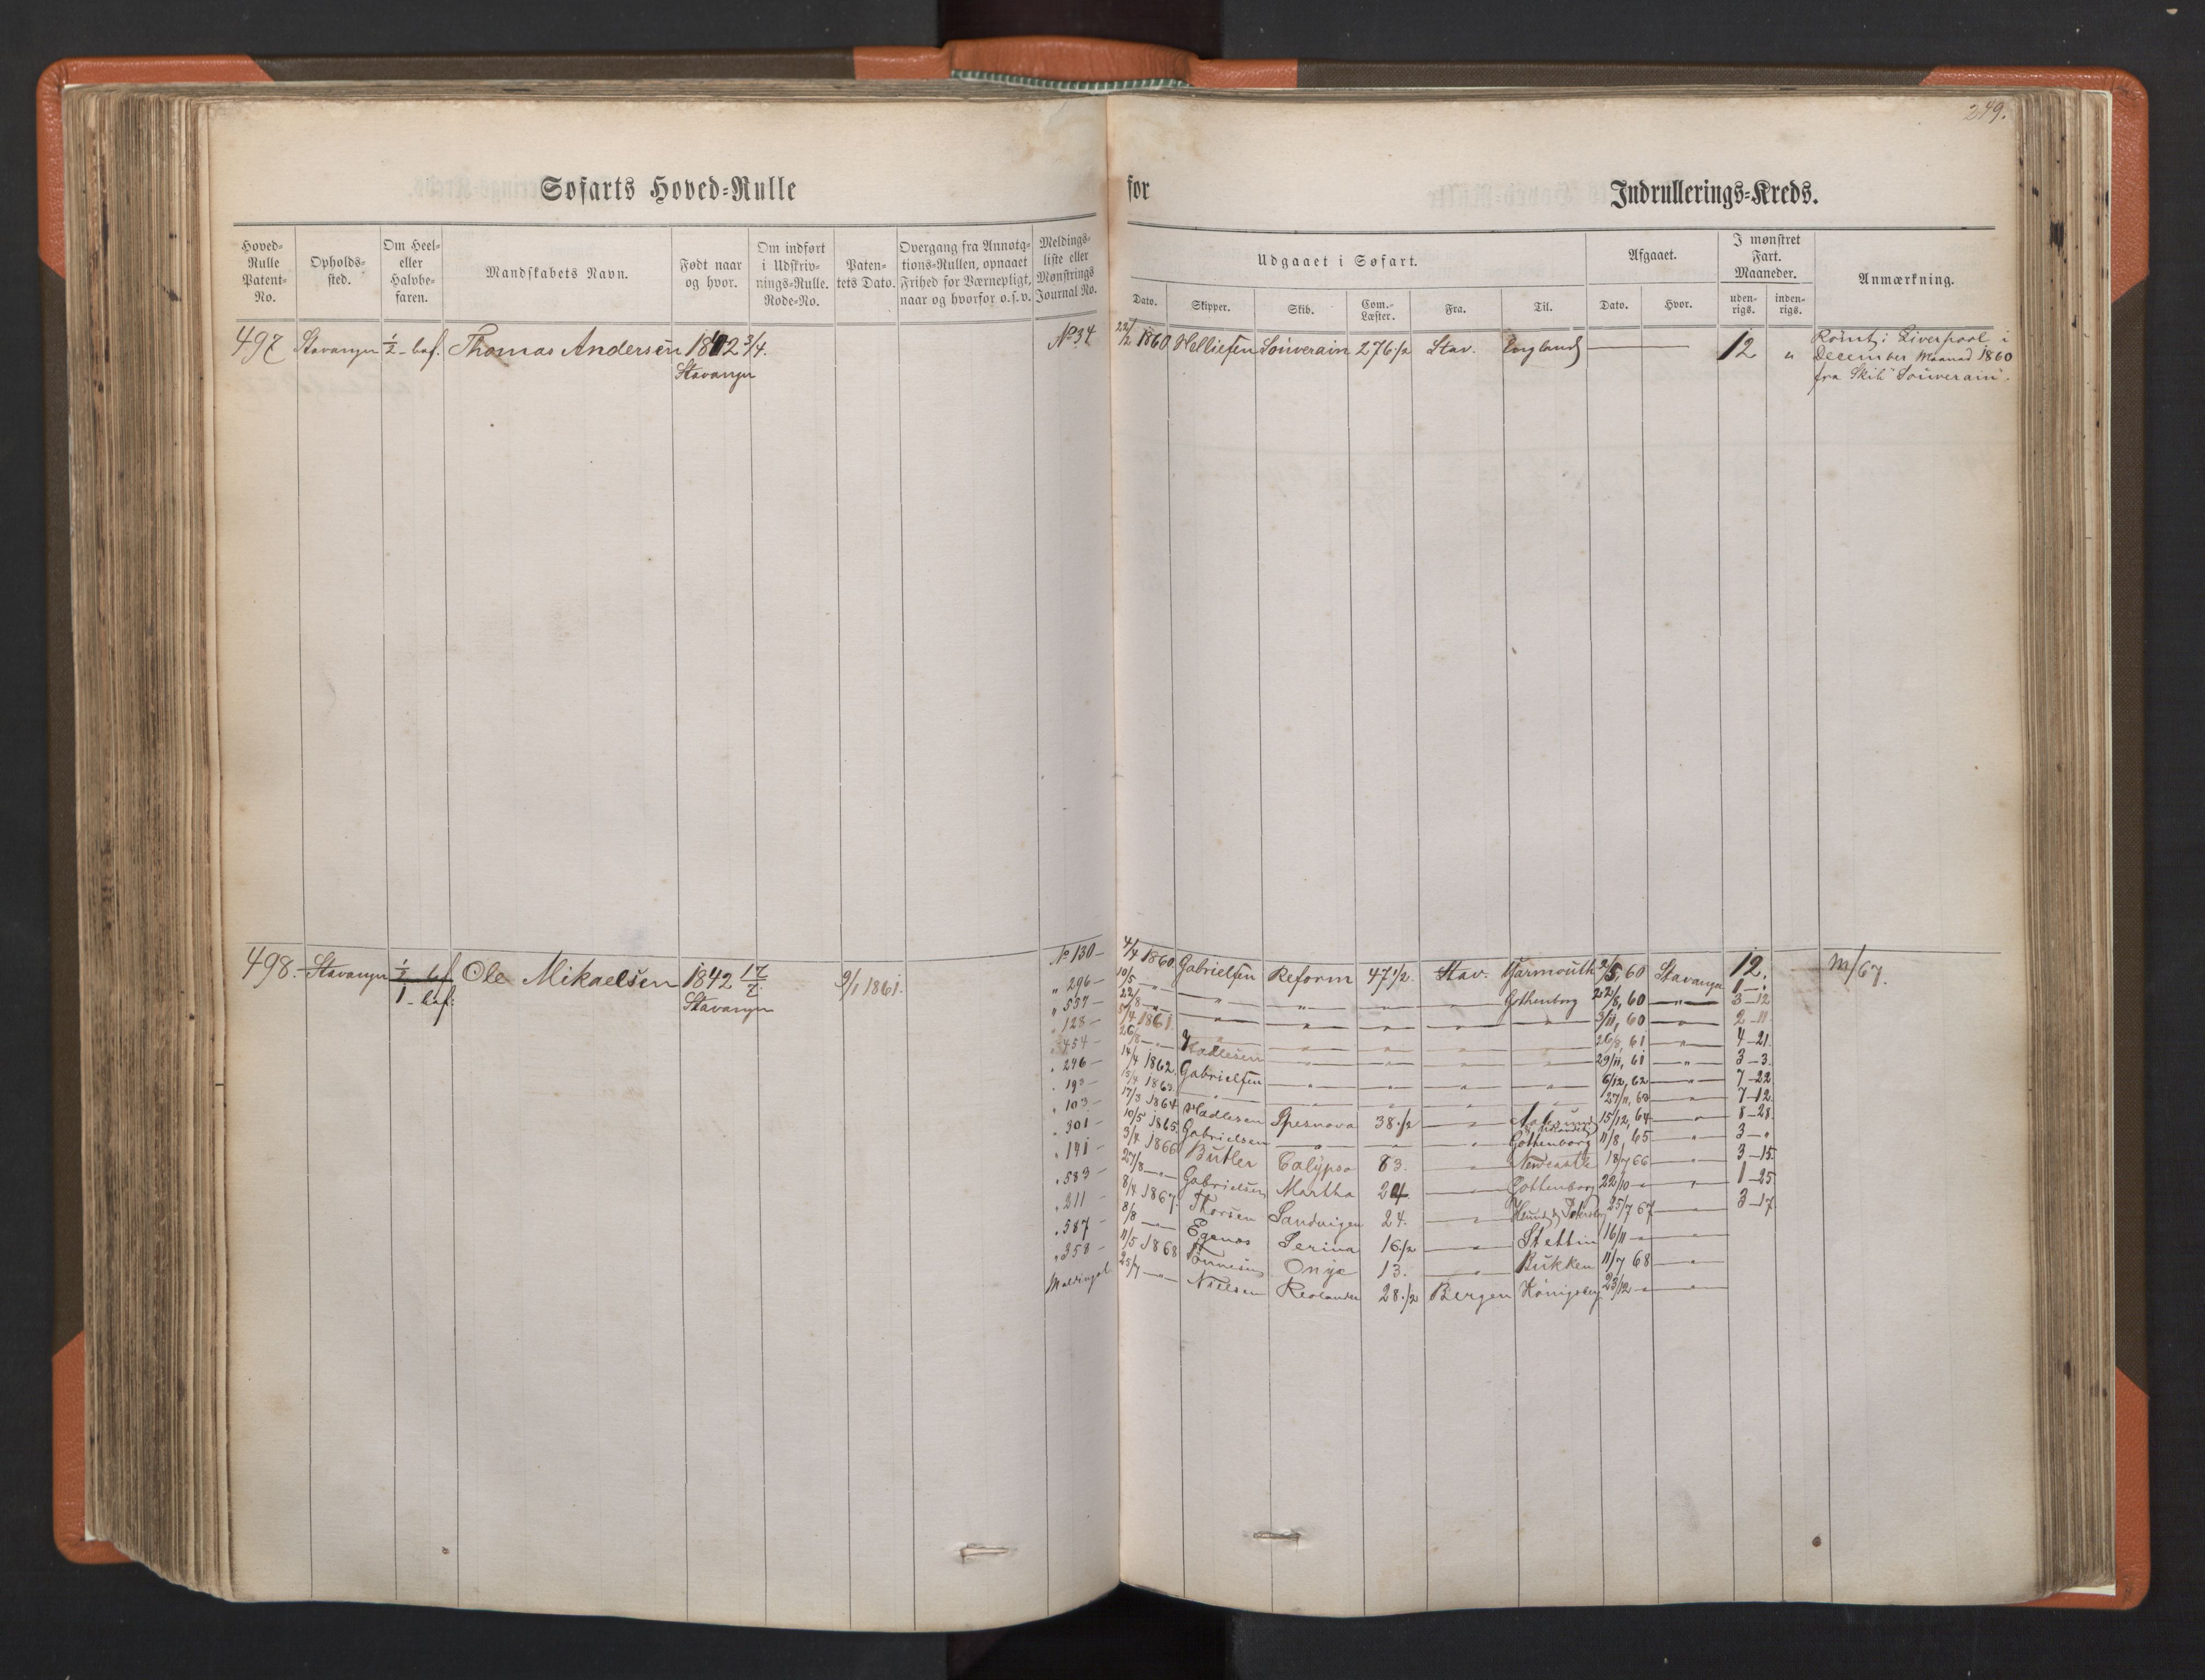 249.
Søfarts Hoved-Rulle for Indrullerings-Kreds.
Hoved-Rulle Patent-No. Opholds-sted. Om Heel- eller Halvbe-faren. Mandskabets Navn. Født naar og hvor. Om indført i Udskriv-nings-Rulle. Rode-No. Paten-tets Dato. Overgang fra Annota-tions-Rullen, opnaaet Frihed for Værnepligt, naar og hvorfor o.s.v. Meldings-liste eller Mønstrings Journal No.
Udgaaet i Søfart. Afgaaet. I mønstret Fart. Maaneder. Anmærkning.
Dato. Skipper. Skib. Com.-Læster. Fra. Til. Dato. Hvor. uden-rigs. inden-rigs.
497 Stavanger ½ - bef. Thomas Andersen 1842 3/4. No 34 22/2 1860 Helliesen Souverain 276 1/2 Stav. England — 12 " Rømt i Liverpool i
Stavanger December Maaned 1860
fra Skib "Souverain".
498. Stavanger ½ bef Ole Mikaelsen 1842 17/7. 9/1 1861. No 130 — 4/4 1860. Gabrielsen Reform 47 1/2. Stav. Yarmouth 2/5, 60 Stavanger 12. M/67.
1 - bef. Stavanger
" 296 — 10/5 — " — " — " — " Gothenborg 22/8, 60 — " — 1 — "
" 557 — 22/8 — " — " — " — " — " 3/11, 60 — 3 — 12
" 128 — 5/4 1861. " — " — " — " — " 26/8, 61 — " 2 — 11
" 454 — 26/8 — " — Hadlesen — " — " — " — " 29/11, 61 — " 4 — 21
" 246 — 14/4 1862. Gabrielsen — " — " — " — " 6/12, 62 — " 3 — 3
" 193 — 15/4 1863. " — " — " — " — " 27/11, 63 — " 7 — 22
" 103 — 17/3 1864 Hadlesen Spesnova 38 1/2 — " 15/12, 64 — " 7 — 12
" 301 — 10/5 1865. Gabrielsen — " — " — " Gothenborg 11/8, 65 — " 8 — 28
" 191 — 3/4 1866 Butler Calypso 83. — " Newcastle 18/7 66 — " 3 — "
" 583 — 27/8 — " — Gabrielsen Martha 24. — " Gothenborg 22/10 — " — " 3 — 15
" 211 — 8/4 1867. Thorsen Sandvigen 24. — " 25/7 67 — " 1 — 25
" 587 — 8/8 — " — Egenas Serina 16 1/2 — " Stettin 16/11 — " — " 3 — 17
" 358 — 11/5 1868 Tønnesen Onyx 13. — " Bukken 11/7 68 — "
25/7 — " — Nielsen 28 1/2 Bergen Königsberg 23/12 — " — "